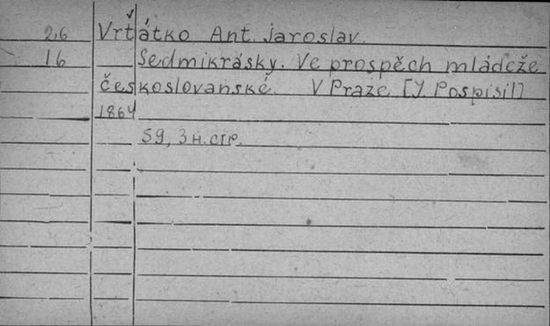 2,6 Vrťátko Ant. Jaroslav.
16 Sedmikrásky. Ve prospěch mládeže
československanské. V Praze [J. Pospíšil]
1864
59, 3 н. стр.